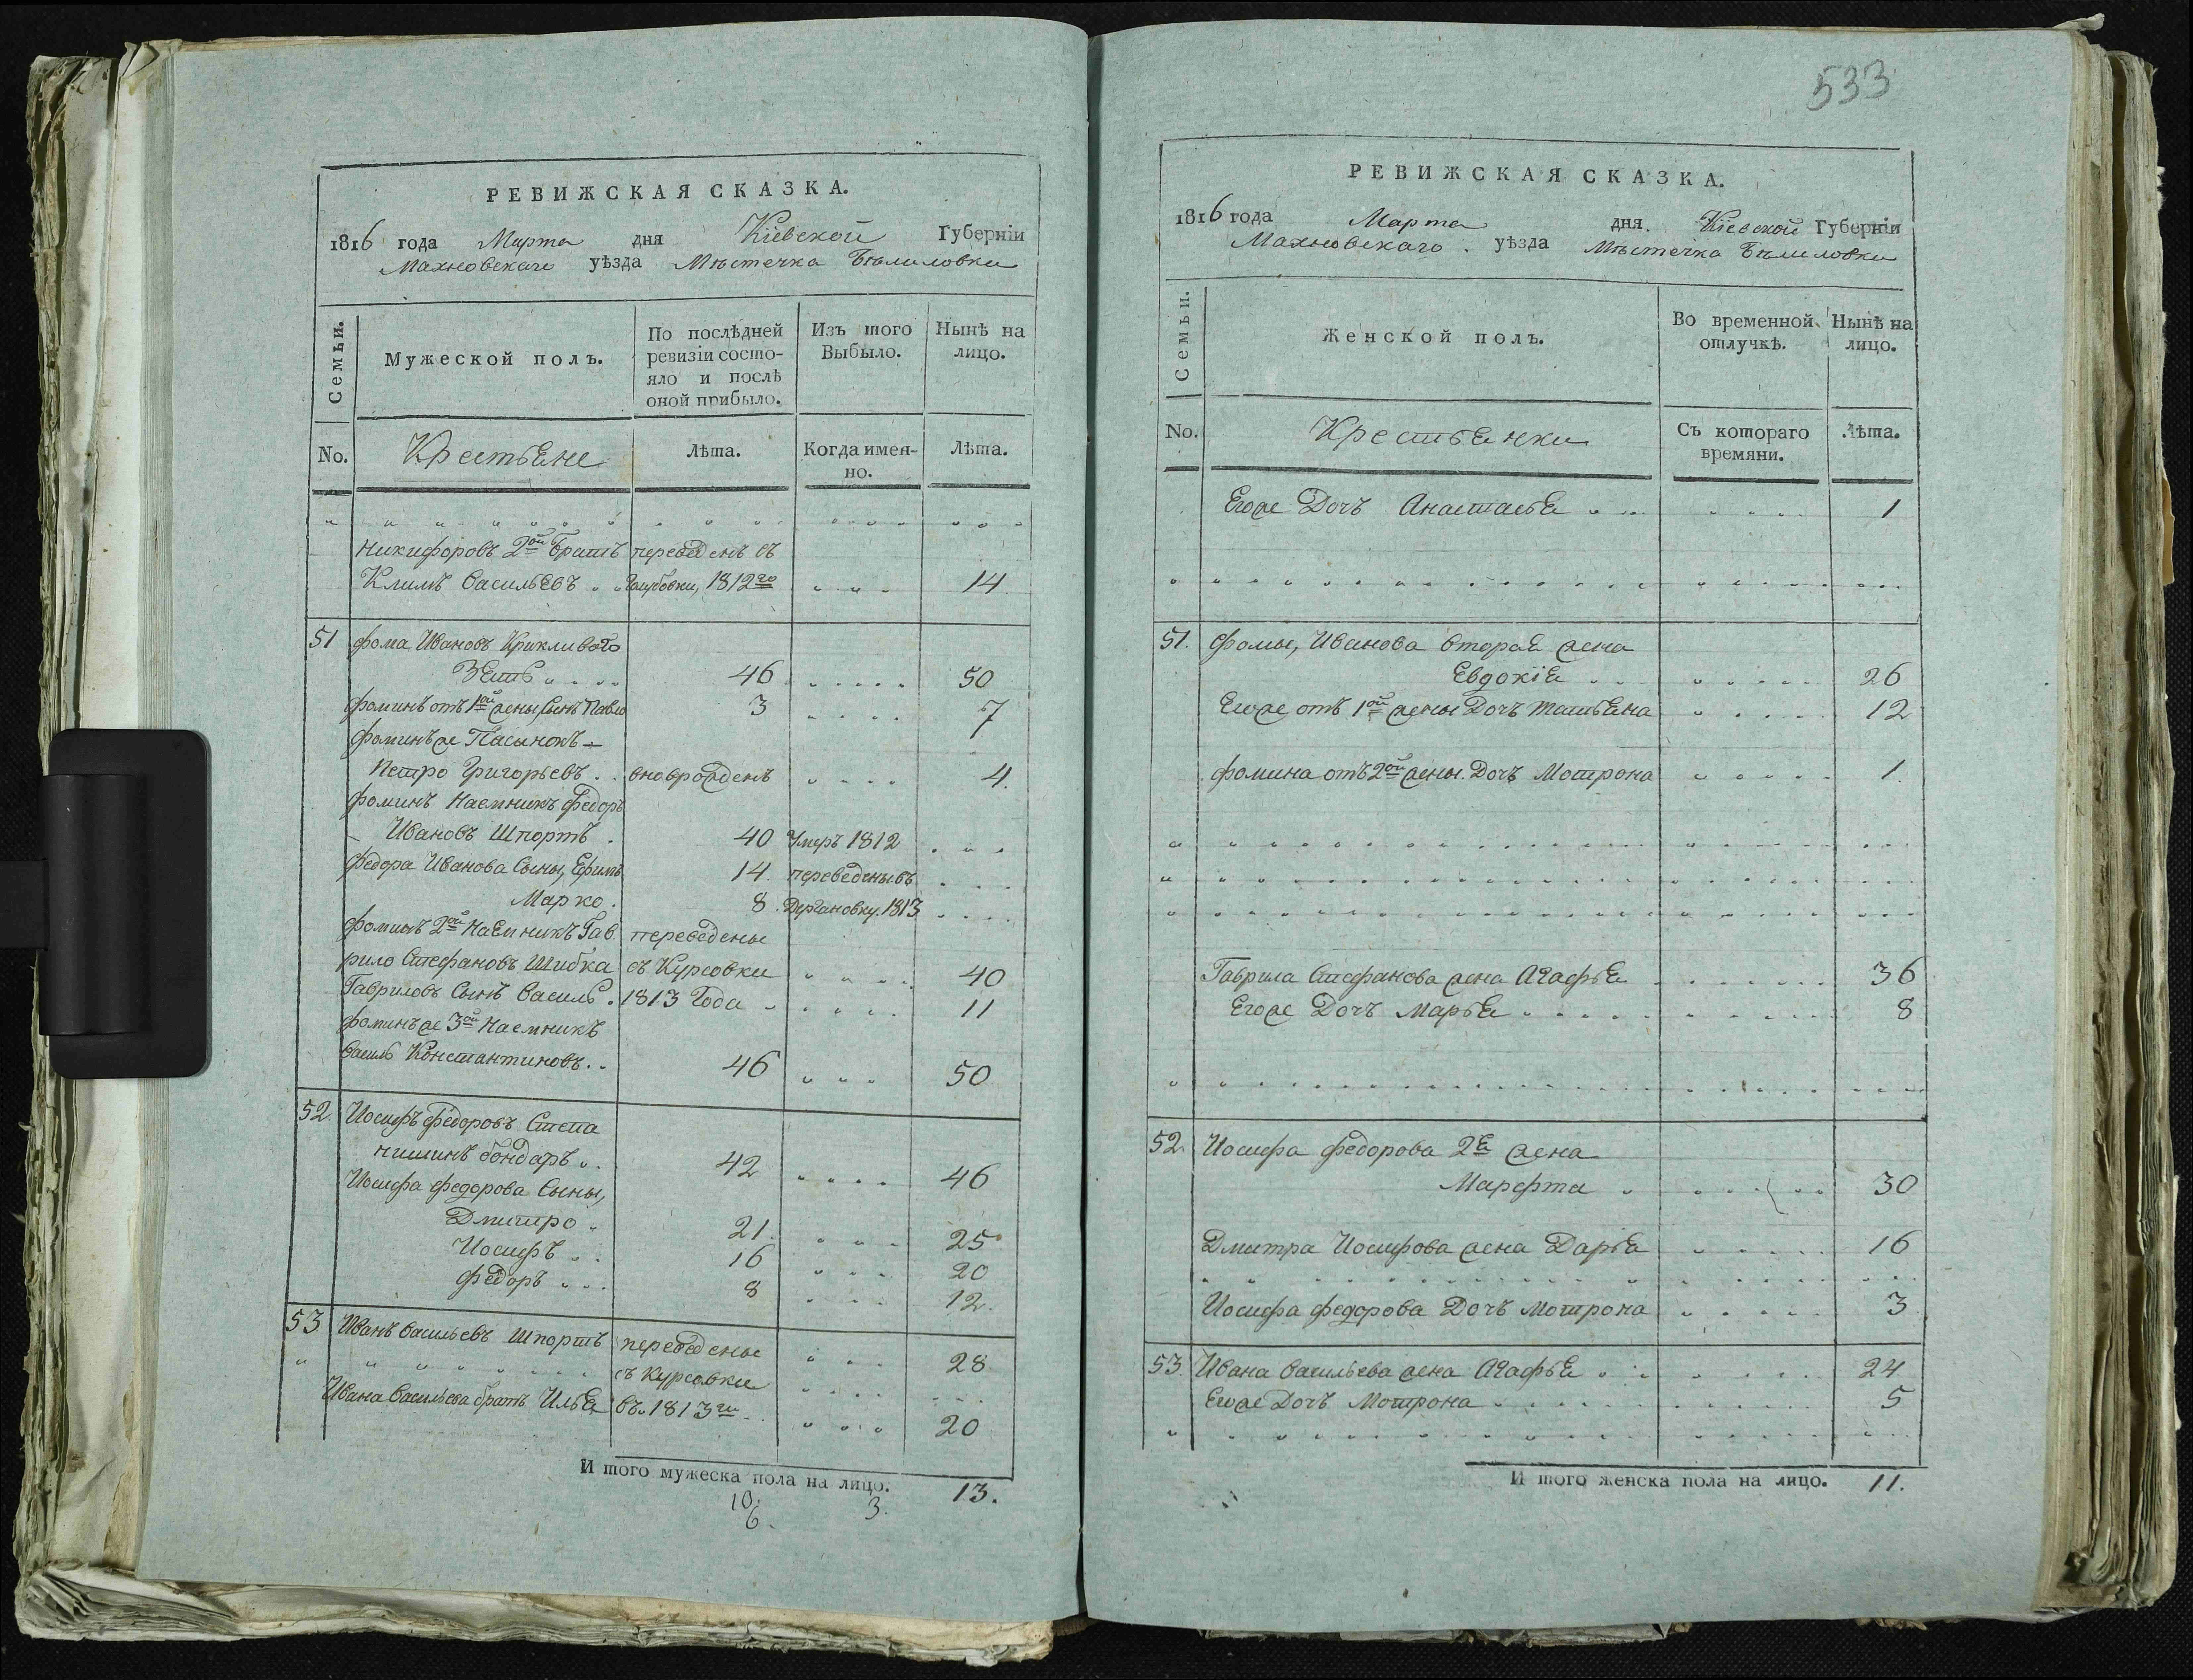 РЕВИЖСКАЯ СКАЗКА.
1816 года Марта дня Кіевской Губерніи
Махновскаго уѣзда Мѣстечка Бѣлиловки
Семьи.
Мужеской полъ.
По послѣдней ревизіи состо-
яло и послѣ оной прибыло.
Изъ того Выбыло.
Нынѣ на лицо.
No.
Крестьяне
Лѣта.
Когда имен-
но.
Лѣта.
Никифоровъ 2ой братъ переведенъ съ
Климъ Васильевъ Голубовки, 1812го 14
51 Фома Ивановъ Крикливого
Зять 46 50
Фоминъ отъ 1ой жены Сынъ Павло 3 7
Фоминъ же Пасынокъ
Петро Григорьевъ новорожденъ 4.
Фоминъ Наемникъ Федоръ
Ивановъ Шпортъ 40 Умеръ 1812
Федора Иванова Сыны, Ефимъ 14. переведены въ
Марко. 8. 1813
Фоминъ 2ой Наемникъ Гав переведены
рило Стефановъ Шибка съ Курсовки 40
Гавриловъ Сынъ Василь. 1813 Года 11
Фоминъ же 3ой Наемникъ
Василь Константиновъ. 46 50
52. Иосифъ Федоровъ Степа
нишинъ бондаръ 42 46
Иосифа Федорова Сыны,
Дмитро 21. 25
Иосифъ 16 20
Федоръ 8 12.
53 Иванъ Васильевъ Шпортъ переведены 28
съ Курсовки
Ивана Васильева братъ Илья въ 1813го 20
И того мужеска пола на лицо. 13.
10. 3.
6.
533
РЕВИЖСКАЯ СКАЗКА.
1816 года Марта дня. Кіевской Губерніи
Махновскаго уѣзда Мѣстечка Бѣлиловки
Семьи.
Женской полъ.
Во временной отлучкѣ.
Нынѣ на лицо.
No.
Крестьянки
Съ котораго времяни.
Лѣта.
Егоже Дочь Анастасья 1
51. Фомы, Иванова вторая жена
Евдокія 26
Егоже отъ 1ой жены Дочь Татьяна 12
Фомина отъ 2ой жены. Дочь Мотрона 1.
Гаврила Стефанова жена Агафья 36
Егоже Дочь Марья 8
52. Иосифа Федорова 2я жена
Марфта 30
Дмитра Иосифова жена Дарья 16
Иосифа Федорова Дочь Мотрона 3
53. Ивана Васильева жена Агафья 24
Егоже Дочь Мотрона 5
И того женска пола на лицо. 11.